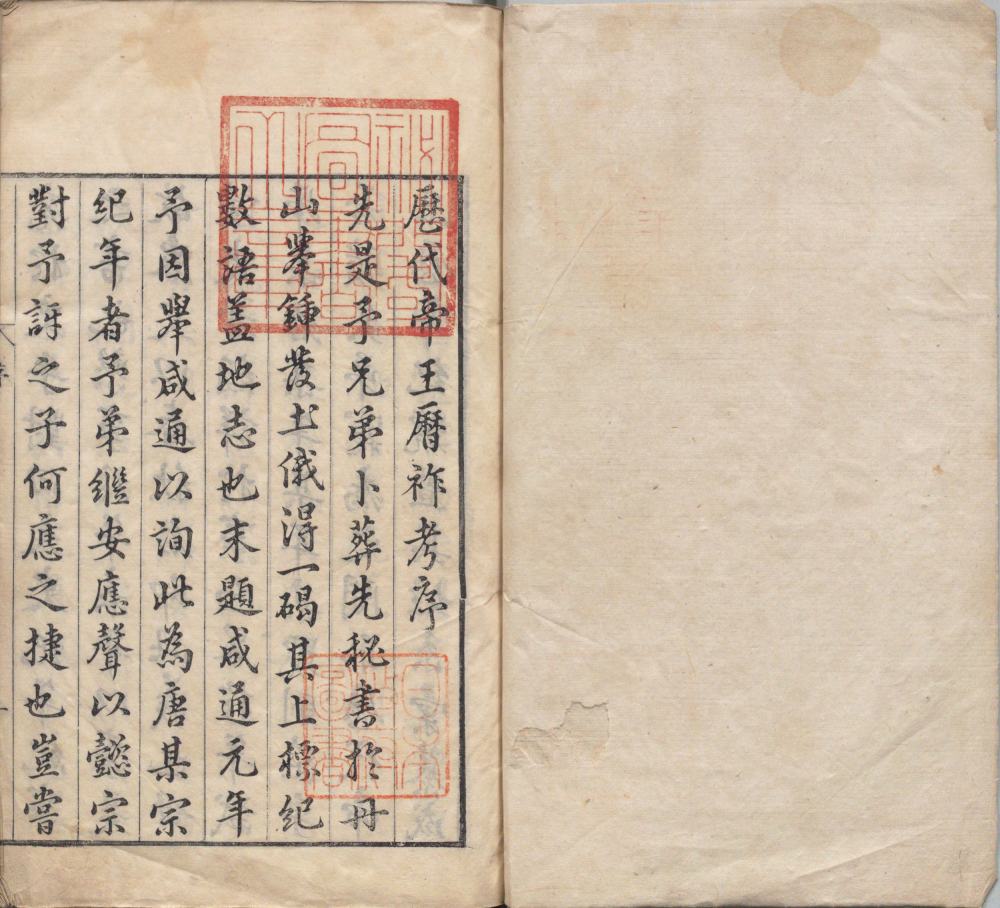 歷代帝王曆祚考序
先是予兄弟卜葬先秘書於丹
山舉鍤發土俄得一碣其上標紀
數語蓋地志也末題咸通元年
予因舉咸通以詢此為唐某宗
紀年者予弟繼安應聲以懿宗
對予訝之子何應之捷也豈嘗
序
一